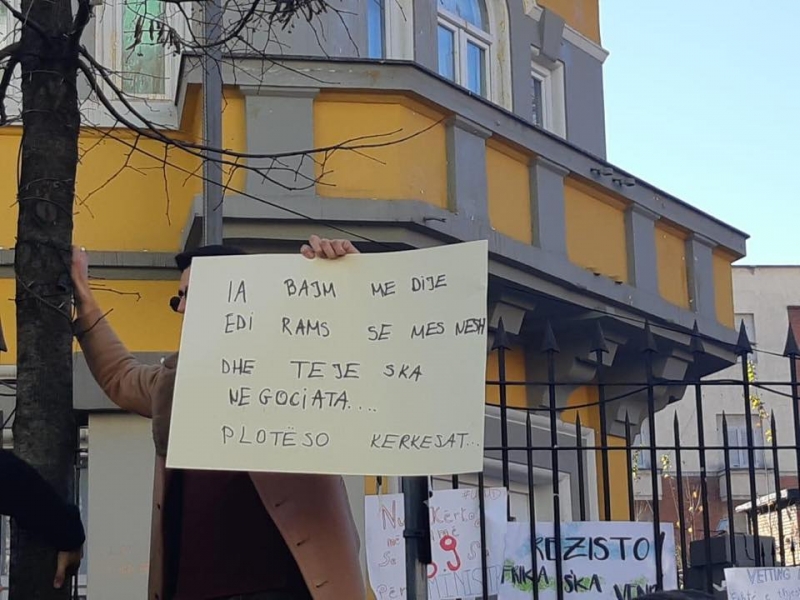 IA BAJM ME DIJE
EDI RAMS SE MES NESH
DHE TEJE SKA
NEGOCIATA....
PLOTËSO KERKESAT...
Nuk Kërko
më
Sa
9
për MINIST
REZISTO!
SKA VEND
VETTING